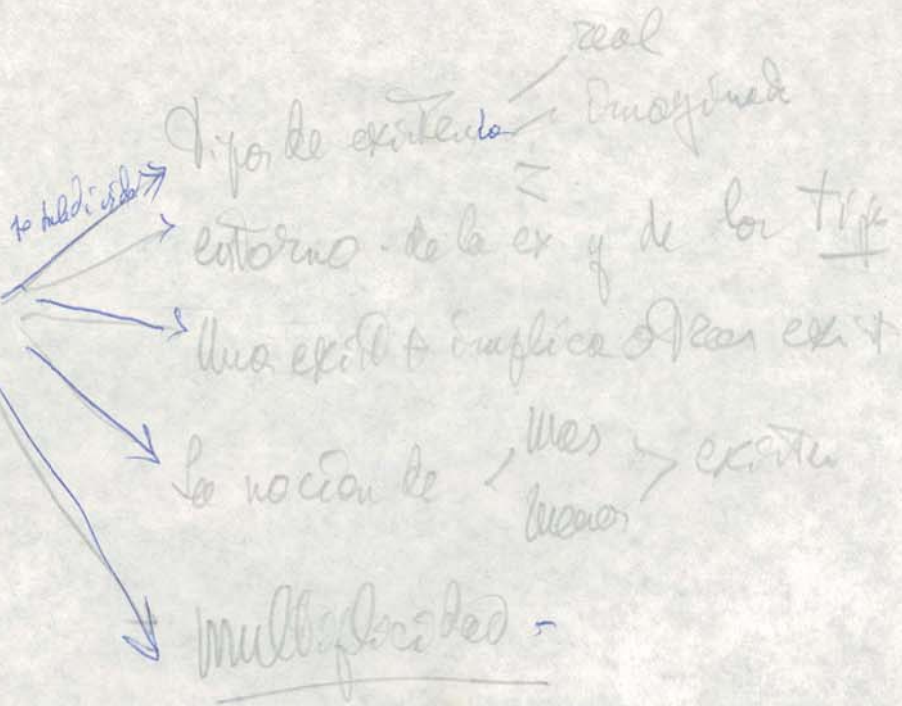 real
Tipo de existencia imaginada
entorno de la ex y de los tipos
Una exist implica otras exist
La noción de mas existen
menos
multiplicidad -